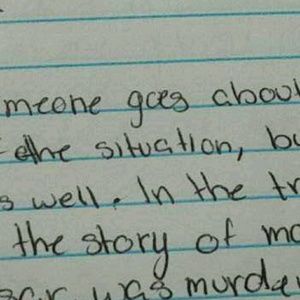 meone goes about
the situation, bu
s well. In the tr
the story of mo
sar was murder